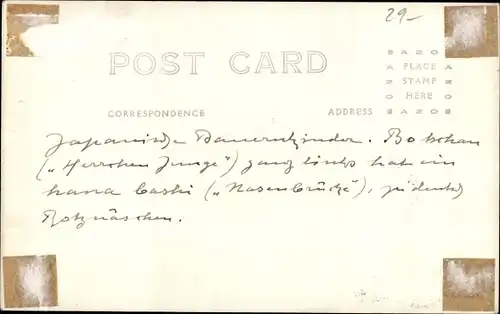 29-
POST CARD
AZO
PLACE
STAMP
HERE
AZO
CORRESPONDENCE ADDRESS
Japanische Bauernkinder. Botchan
(„Herrchen Junge“) ganz links hat ein
hana bashi („Nasenbrücke“), zu deutsch
Rotznäschen.